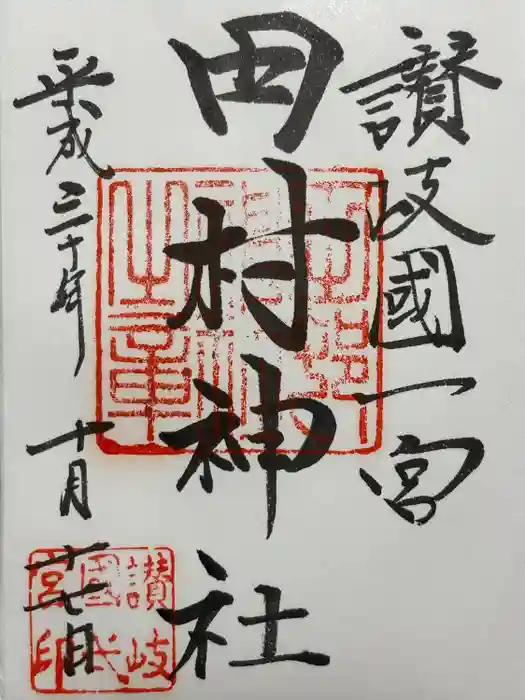 讃岐國一宮
田村神社
平成三十年
十月廿七日
田村
神社
之章
讃岐
國一
宮印